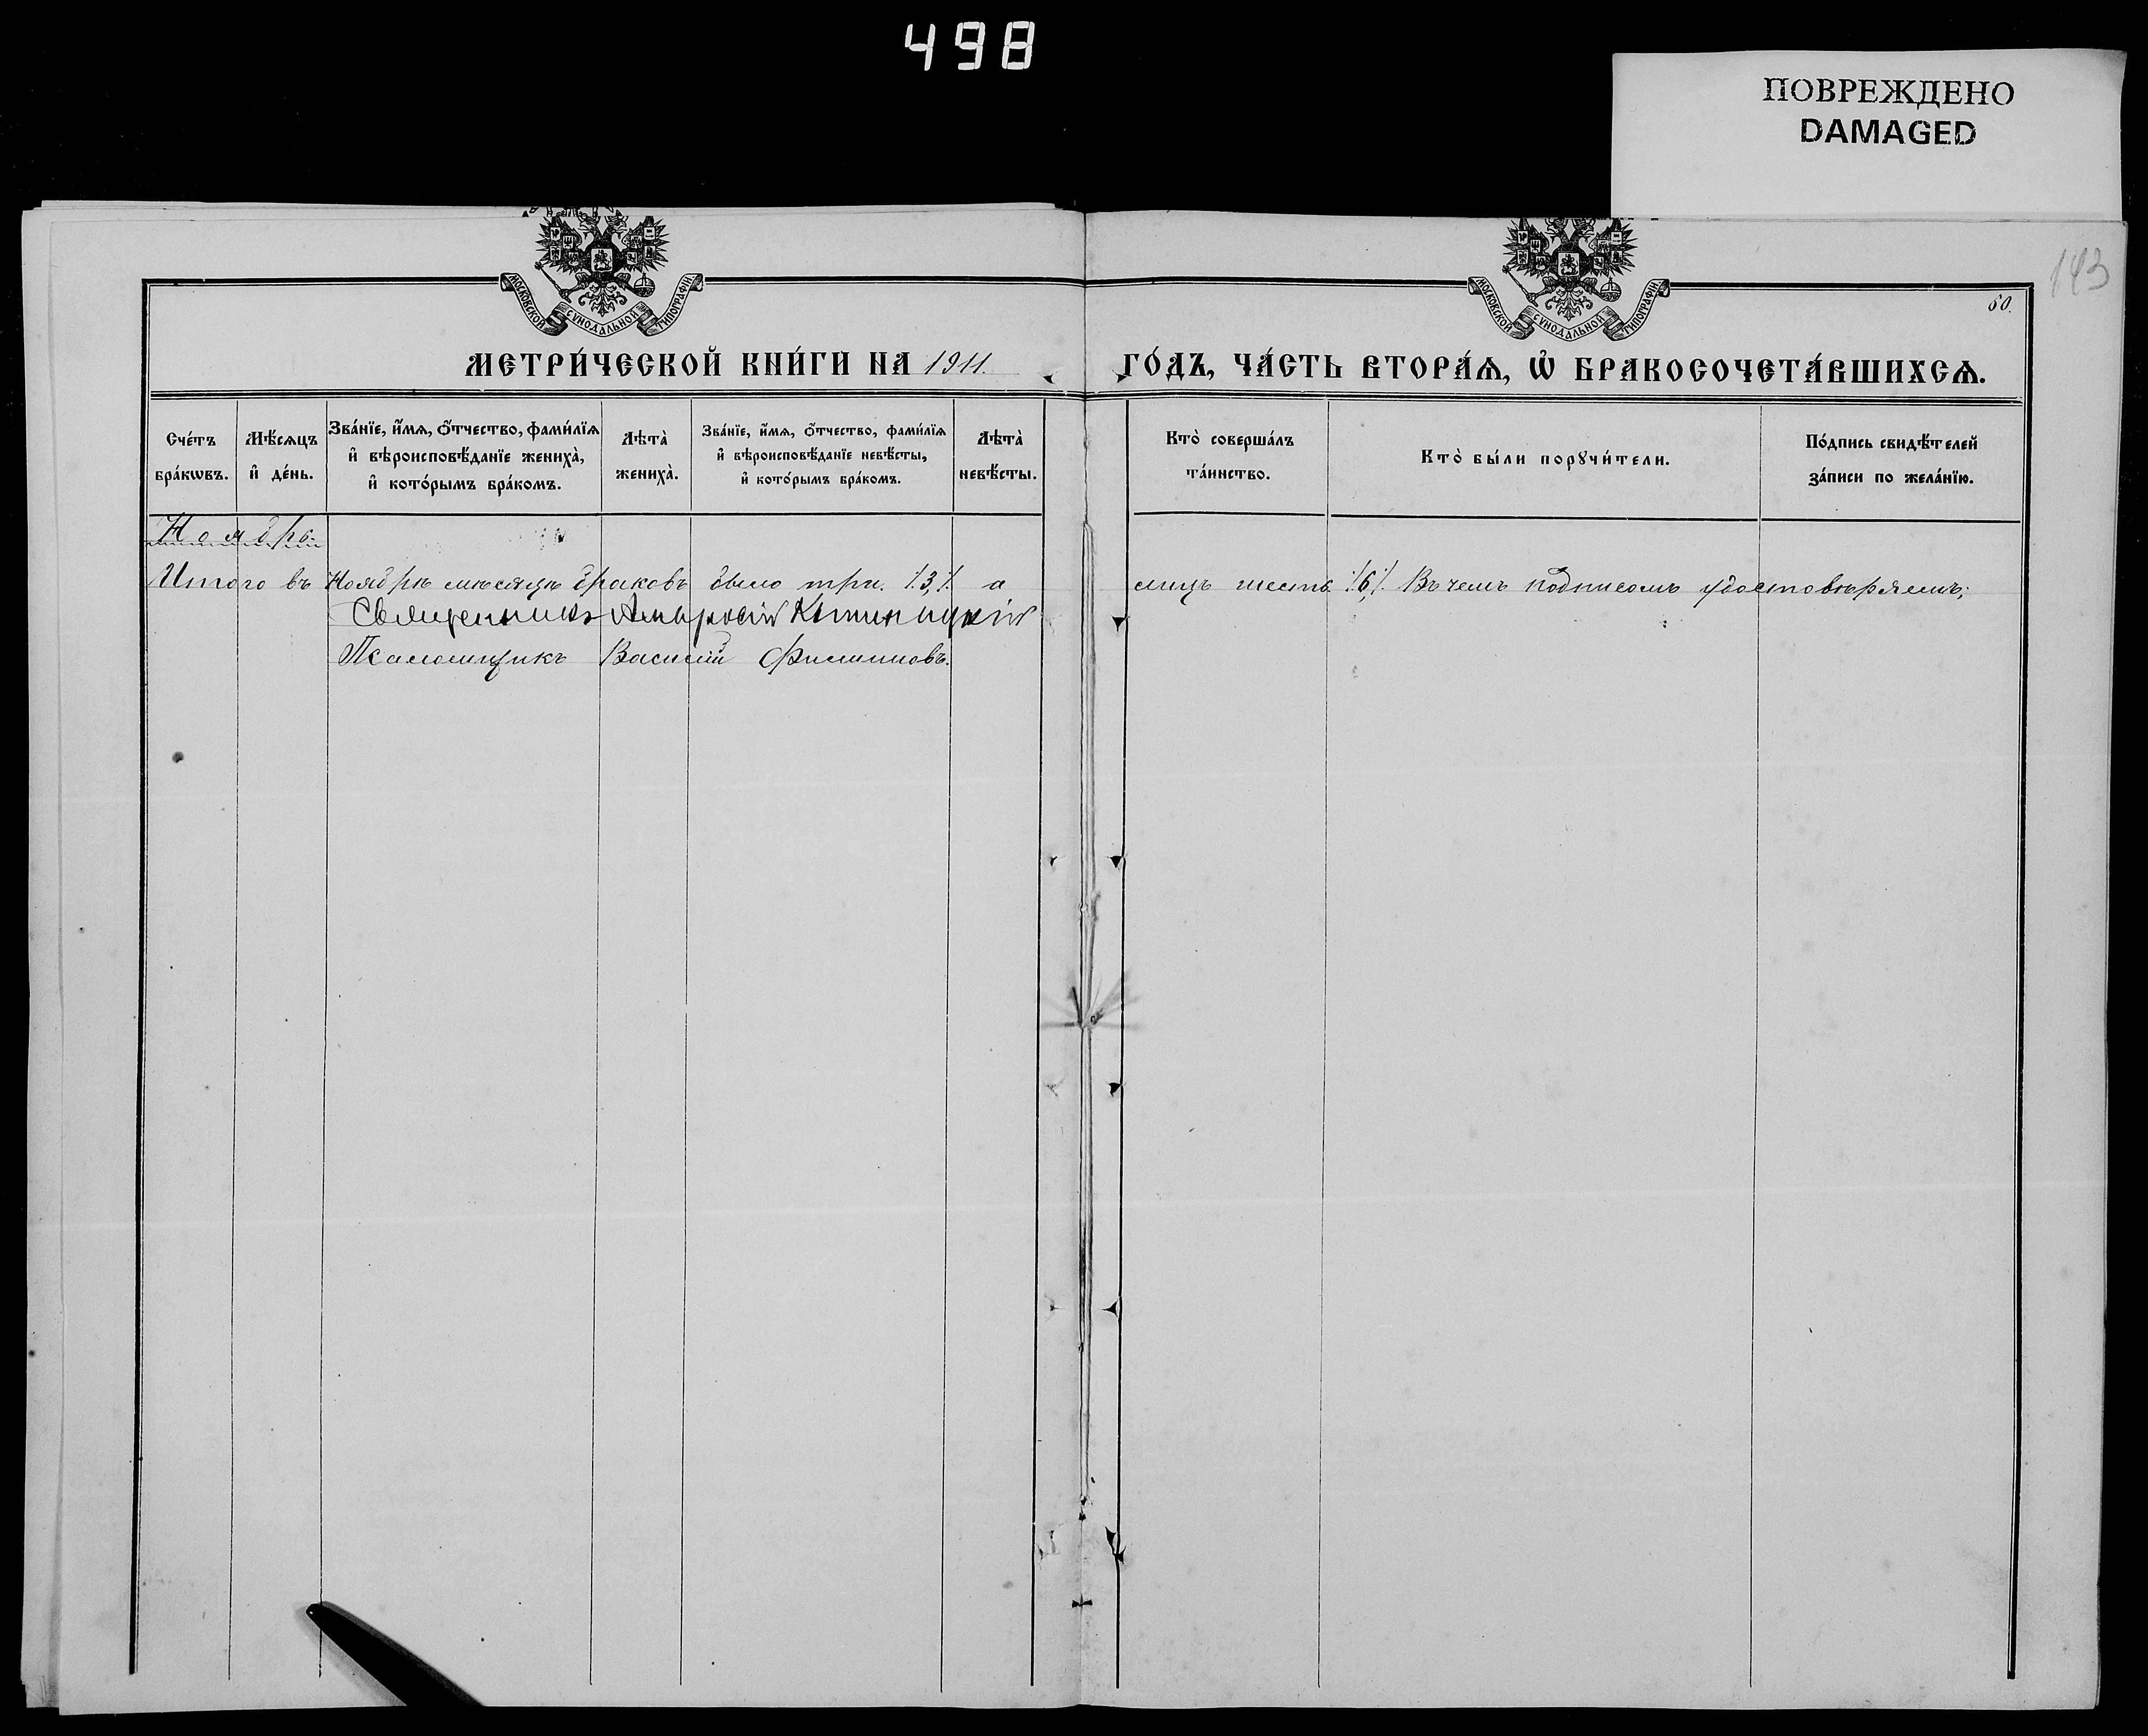 498
ПОВРЕЖДЕНО
DAMAGED
143
МОСКОВСКОЙ СѴНОДАЛЬНОЙ ТИПОГРАФІИ.
МОСКОВСКОЙ СѴНОДАЛЬНОЙ ТИПОГРАФІИ.
50.
МЕТРИ́ЧЕСКОЙ КНИ́ГИ НА 1911. ГО́ДЪ, ЧА́СТЬ ВТОРА́Ѧ, Ѡ҆ БРАКОСОЧЕТА́ВШИХСѦ.
Сче́тъ
бра́кѡвъ.
Мѣ́сяцъ
и҆ де́нь.
Зва́нїе, и҆́мя, ѻ҆́тчество, фами́лїя
и҆ вѣроисповѣ́данїе жениха̀,
и҆ кото́рымъ бра́комъ.
Лѣта̀
жениха̀.
Зва́нїе, и҆́мя, ѻ҆́тчество, фами́лїя
и҆ вѣроисповѣ́данїе невѣ́сты,
и҆ кото́рымъ бра́комъ.
Лѣта̀
невѣ́сты.
Кто̀ соверша́лъ
та́инство.
Кто̀ бы́ли порꙋчи́тели.
По́дпись свидѣ́телей
за́писи по жела́нїю.
Ноябрь
Итого въ Ноябрѣ мѣсяцѣ браковъ было три ⁒3⁒ а лицъ шесть ⁒6⁒ Въ чемъ подписомъ удостовѣряемъ;
Священникъ Амвросій
Псаломщикъ Василій Филиповъ.